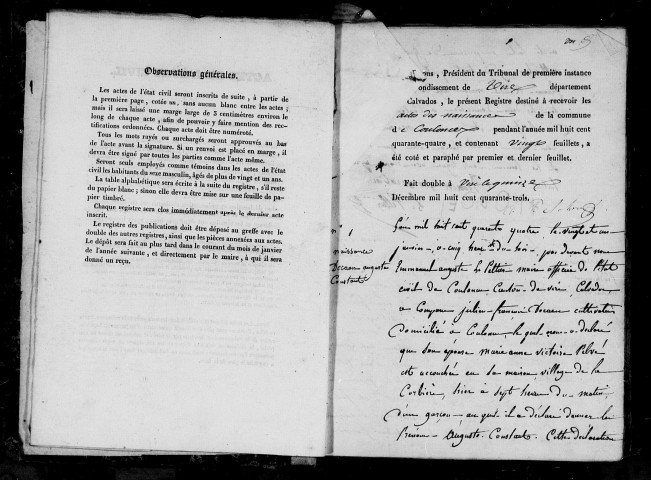 Observations générales.
Les actes de l'état civil seront inscrits de suite, à partir de
la première page, cotée un, sans aucun blanc entre les actes;
mais il sera laissé une marge large de 3 centimètres environ le
long de chaque acte, afin de pouvoir y faire mention des rec-
tifications ordonnées. Chaque acte doit être numéroté.
Tous les mots rayés ou surchargés seront approuvés au bas
de l'acte avant la signature. Si un renvoi est placé en marge, il
devra être signé par toutes les parties comme l'acte même.
Seront seuls employés comme témoins dans les actes de l'état
civil les habitants du sexe masculin, âgés de plus de vingt et un ans.
La table alphabétique sera écrite à la suite du registre, s'il reste
du papier blanc; sinon elle devra être mise sur une feuille de pa-
pier timbré.
Chaque registre sera clos immédiatement après le dernier acte
inscrit.
Le registre des publications doit être déposé au greffe avec le
double des autres registres, ainsi que les pièces annexées aux actes.
Le dépôt sera fait au plus tard dans le courant du mois de janvier
de l'année suivante, et directement par le maire, à qui il sera
donné un reçu.
ons, Président du Tribunal de première instance
ondissement de Vire département
Calvados, le présent Registre destiné à recevoir les
actes des naissances de la commune
de Coulonces pendant l'année mil huit cent
quarante-quatre, et contenant vingt feuillets, a
été coté et paraphé par premier et dernier feuillet.
Fait double à Vire le quinze
Décembre mil huit cent quarante-trois.
n° 1
naissance
auguste
Constant
L'an mil huit cent quarante quatre le
janvier, a cinq heures du soir, par devant nous
Emmanuel auguste le Pelletier maire officier de l'état
civil de Coulonces Canton de vire, Calvados
a Comparu julien françois cultivateur
domicilié a Coulonces, lequel nous a déclaré
que Son épouse marie anne victoire Pelvé
est accouchée en sa maison, village de la
Corbière, hier à sept heures du matin
d'un garçon auquel il a déclaré donner les
Prénoms Auguste Constant. Cette déclaration